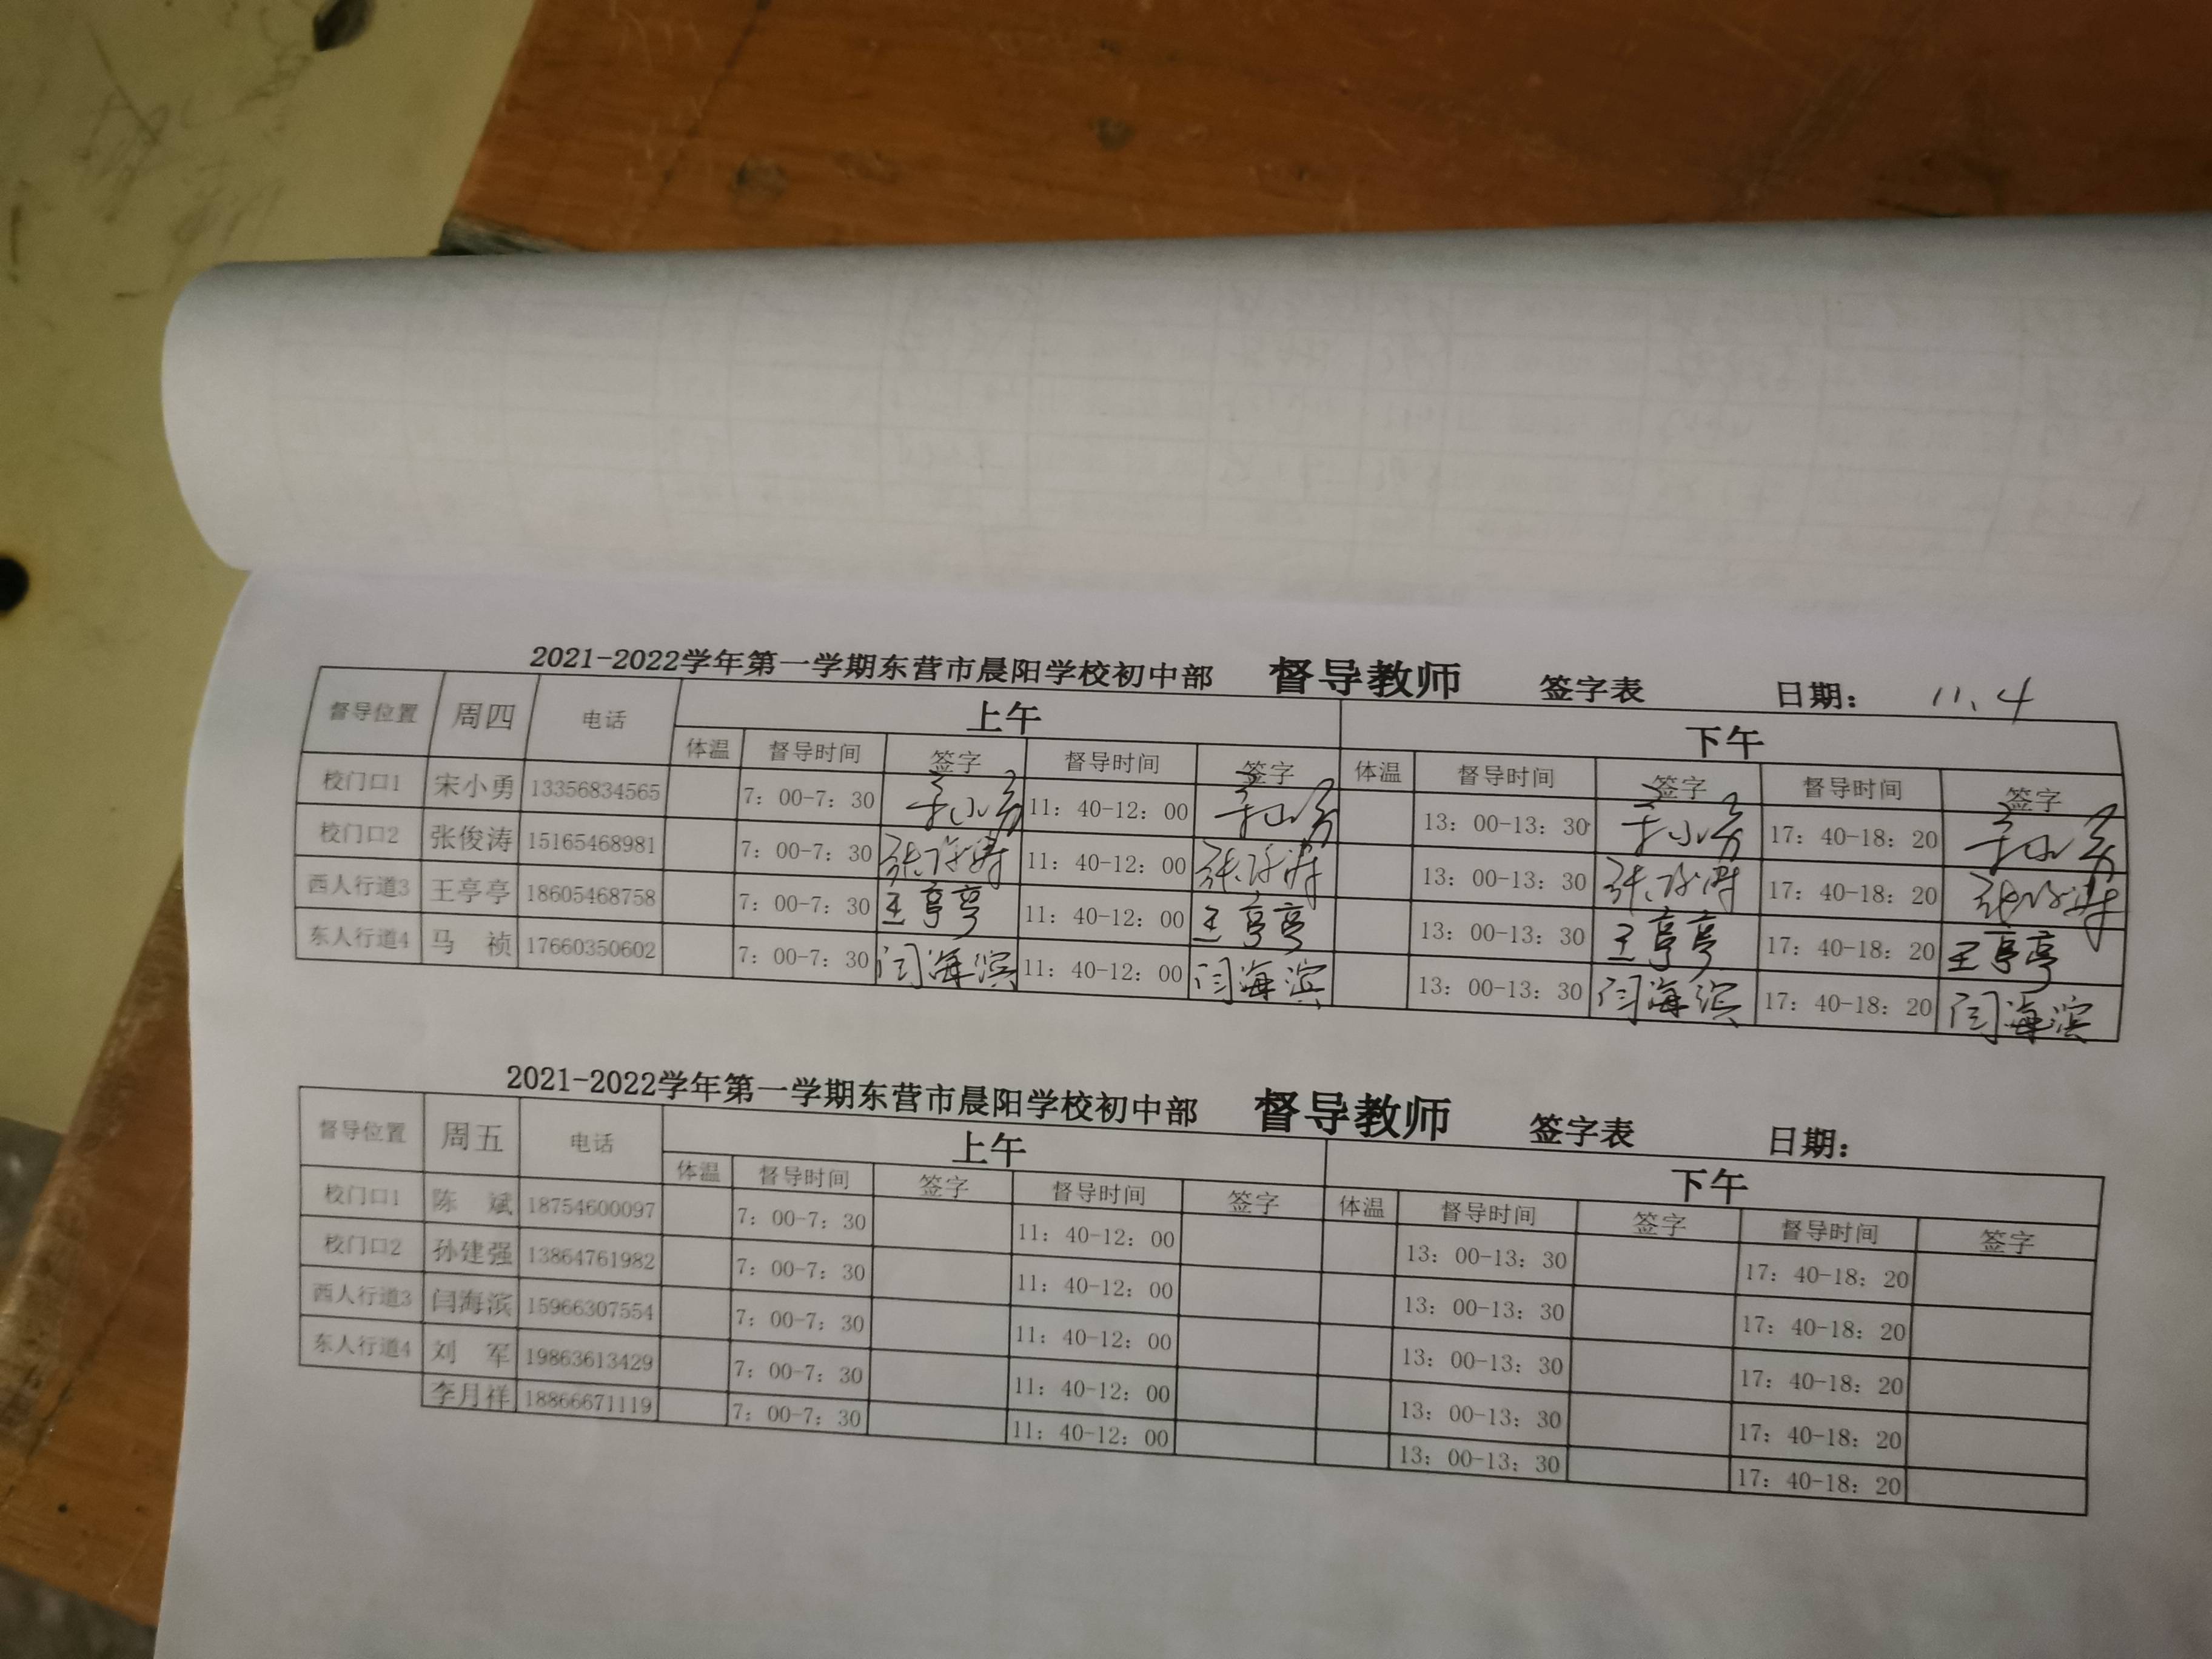 2021-2022学年第一学期东营市晨阳学校初中部 督导教师 签字表 日期： 11.4
督导位置 周四 电话 上午 下午
体温 督导时间 签字 督导时间 签字 体温 督导时间 签字 督导时间 签字
校门口1 宋小勇 13356834565 7：00-7：30 宋小勇 11：40-12：00 宋小勇 13：00-13：30 宋小勇 17：40-18：20 宋小勇
校门口2 张俊涛 15165468981 7：00-7：30 张俊涛 11：40-12：00 张俊涛 13：00-13：30 张俊涛 17：40-18：20 张俊涛
西人行道3 王亭亭 18605468758 7：00-7：30 王亭亭 11：40-12：00 王亭亭 13：00-13：30 王亭亭 17：40-18：20 王亭亭
东人行道4 马 祯 17660350602 7：00-7：30 闫海滨 11：40-12：00 闫海滨 13：00-13：30 闫海滨 17：40-18：20 闫海滨
2021-2022学年第一学期东营市晨阳学校初中部 督导教师 签字表 日期：
督导位置 周五 电话 上午 下午
体温 督导时间 签字 督导时间 签字 体温 督导时间 签字 督导时间 签字
校门口1 陈 斌 18754600097 7：00-7：30 11：40-12：00 13：00-13：30 17：40-18：20
校门口2 孙建强 13864761982 7：00-7：30 11：40-12：00 13：00-13：30 17：40-18：20
西人行道3 闫海滨 15966307554 7：00-7：30 11：40-12：00 13：00-13：30 17：40-18：20
东人行道4 刘 军 19863613429 7：00-7：30 11：40-12：00 13：00-13：30 17：40-18：20
李月祥 18866671119 7：00-7：30 11：40-12：00 13：00-13：30 17：40-18：20